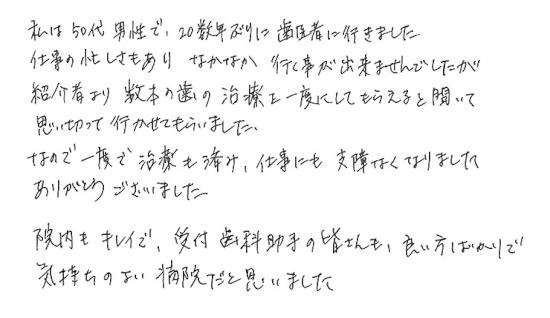 私は50代男性で、20数年ぶりに歯医者に行きました
仕事の忙しさもあり なかなか 行く事が出来ませんでしたが
紹介者より 数本の歯の治療を一度にしてもらえると聞いて
思い切って行かせてもらいました。
なので一度で治療も済み、仕事にも支障なくなりました
ありがとうございました。
院内もキレイで、受付 歯科助手の皆さんも、良い方ばかりで
気持ちのよい病院だと思いました